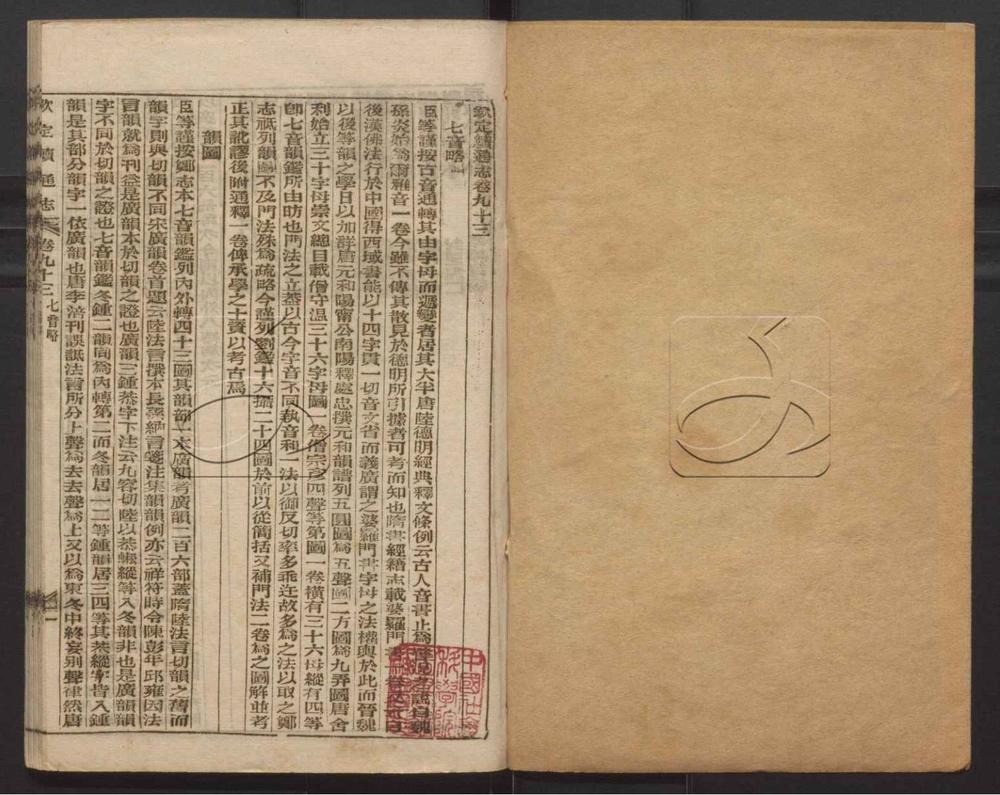 欽定續通志卷九十三
七音略一
臣等謹按古音通轉其由字母而遞變者居其大半唐陸德明經典釋文條例云古人音書止爲
孫炎始爲爾雅音一卷今雖不傳其散見於德明所引據者可考而知也隋書經籍志載婆羅門書
後漢佛法行於中國得西域書能以十四字貫一切音文省而義廣謂之婆羅門書字母之法權輿於此而晉魏
以後等韻之學日以加詳唐元和陽甯公南陽釋處忠撰元和韻譜列五圓圖爲五聲圖二方圖爲九弄圖唐舍
利始立三十字母崇文總目載僧守溫三十六字母圖一卷僧宗彥四聲等第圖一卷橫有三十六母縱有四等
卽七音韻鑑所由昉也門法之立蓋以古今字音不同執音和一法以御反切率多乖迕故多爲之法以取之鄭
志祗列韻圖不及門法殊爲疏略今謹列劉鑑十六攝二十四圖於前以從簡括又補門法二卷爲之圖解並考
正其訛謬後附通釋一卷俾承學之士資以考古焉
韻圖
臣等謹按鄭志本七音韻鑑列內外轉四十三圖其韻部一本廣韻考廣韻二百六部蓋隋陸法言切韻之舊而
韻字則與切韻不同宋廣韻卷首題云陸法言撰本長孫納言箋注集韻韻例亦云祥符時令陳彭年邱雍因法
言韻就爲刊益是廣韻本於切韻之證也廣韻三鍾恭字下注云九容切陸以恭蜙縱等入冬韻非也是廣韻韻
字不同於切韻之證也七音韻鑑冬鍾二韻同爲內轉第二而冬韻居一二等鍾韻居三四等其恭縱字皆入鍾
韻是其部分韻字一依廣韻也唐李涪刊誤譏法言所分上聲爲去去聲爲上又以爲東冬中終妄別聲律然唐
欽定續通志
卷九十三 七音略
一
中國社會
科學院